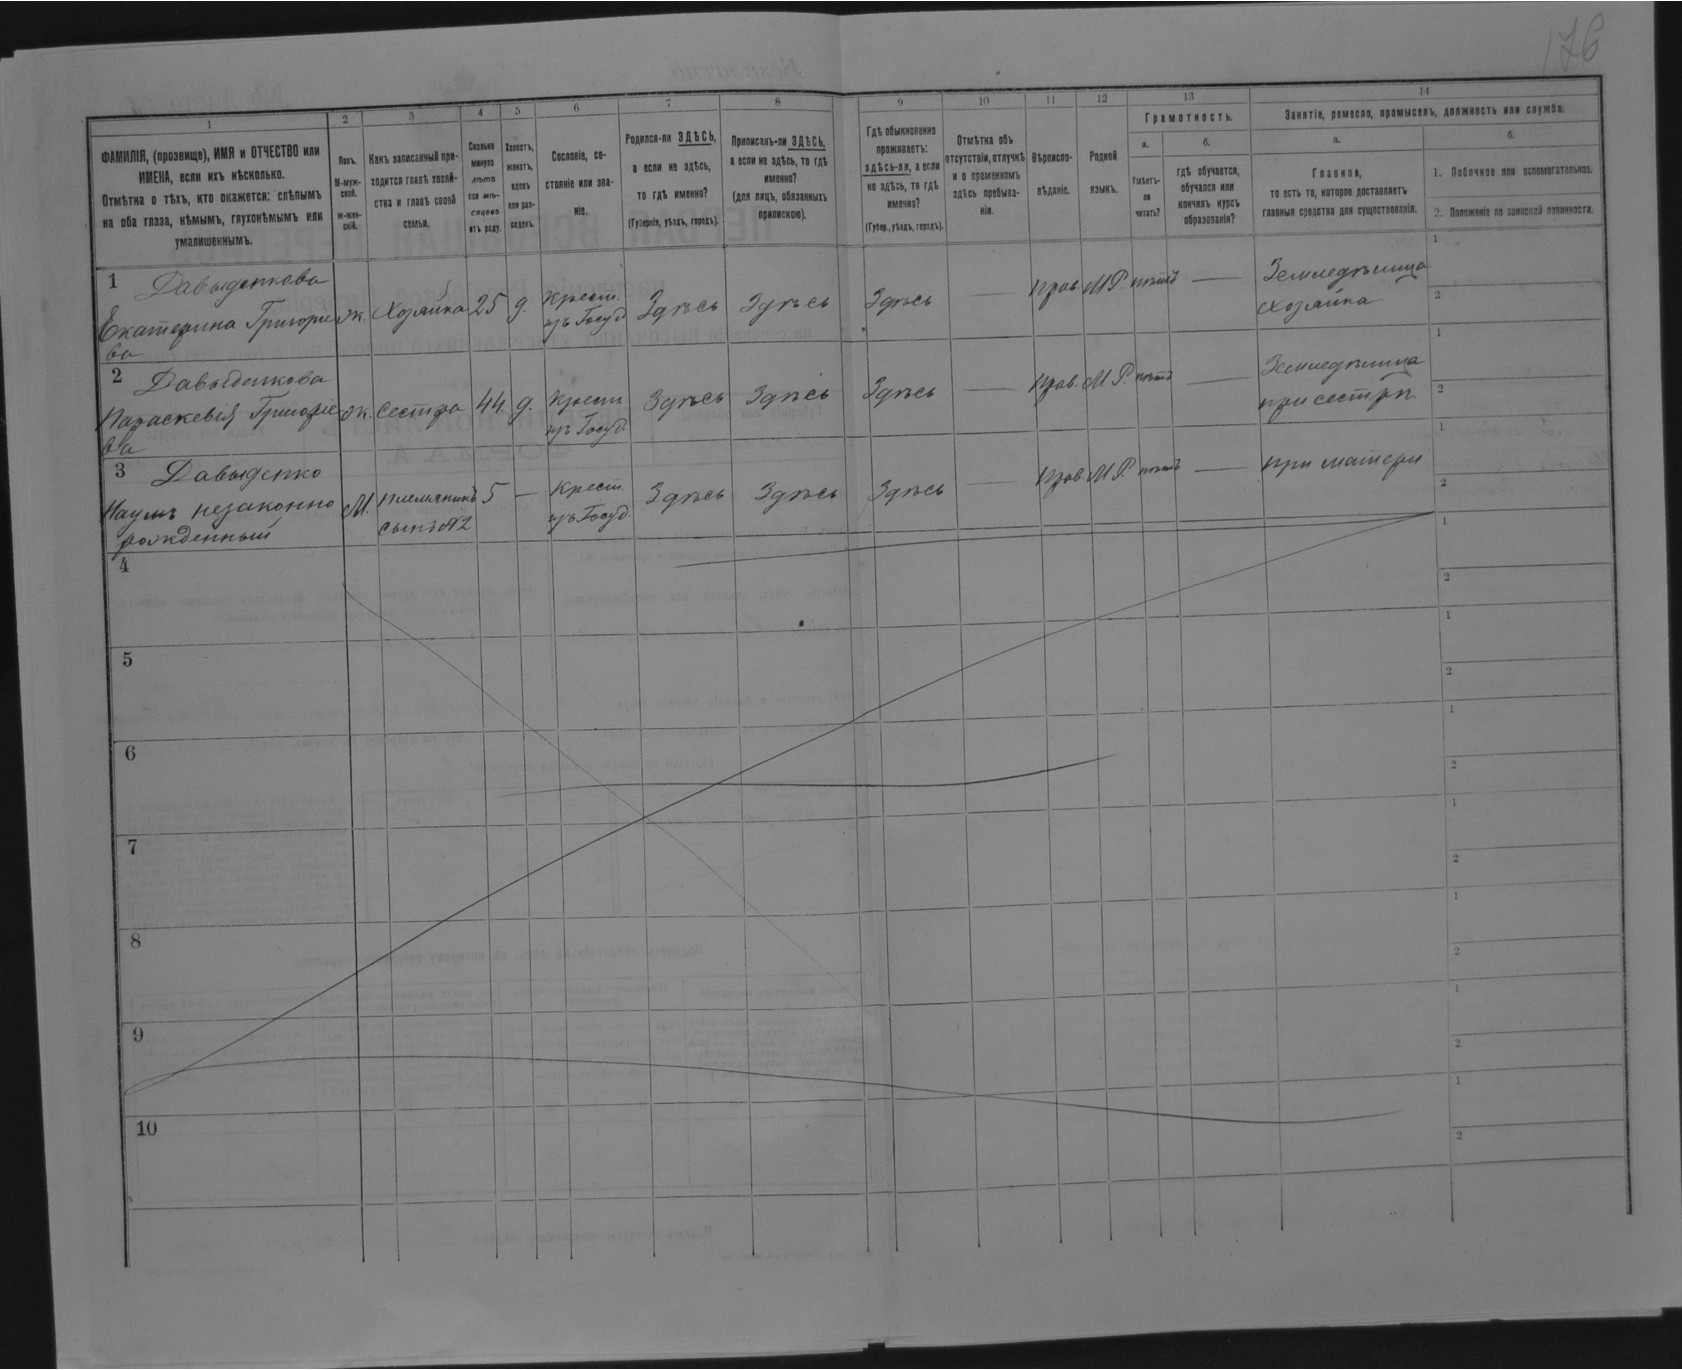 176
1
2
3
4
5
6
7
8
9
10
11
12
13
14
ФАМИЛІЯ, (прозвище), ИМЯ и ОТЧЕСТВО или
ИМЕНА, если ихъ нѣсколько.
Отмѣтка о тѣхъ, кто окажется: слѣпымъ
на оба глаза, нѣмымъ, глухонѣмымъ или
умалишеннымъ.
Полъ.
М-муж-
ской.
Ж-жен-
скій.
Какъ записанный при-
ходится главѣ хозяй-
ства и главѣ своей
семьи.
Сколько
минуло
лѣтъ
или мѣ-
сяцевъ
отъ роду.
Холостъ,
женатъ,
вдовъ
или раз-
веденъ.
Сословіе, со-
стояніе или зва-
ніе.
Родился-ли ЗДѢСЬ,
а если не здѣсь,
то гдѣ именно?
(Губернія, уѣздъ, городъ).
Приписанъ-ли ЗДѢСЬ,
а если не здѣсь, то гдѣ
именно?
(для лицъ, обязанныхъ
припискою).
Гдѣ обыкновенно
проживаетъ:
здѣсь-ли, а если
не здѣсь, то гдѣ
именно?
(Губер., уѣздъ, городъ).
Отмѣтка объ
отсутствіи, отлучкѣ
и о временномъ
здѣсь пребыва-
ніи.
Вѣроиспо-
вѣданіе.
Родной
языкъ.
Грамотность.
а.
Умѣетъ-
ли
читать?
б.
гдѣ обучается,
обучался или
кончилъ курсъ
образованія?
Занятіе, ремесло, промыселъ, должность или служба.
а.
Главное,
то есть то, которое доставляетъ
главныя средства для существованія.
б.
1. Побочное или вспомогательное.
2. Положеніе по воинской повинности.
1 Давыденкова
Екатерина Григоріе
ва
ж. Хозяйка 25 д. Крест.
изъ Госуд Здѣсь Здѣсь Здѣсь — прав М.Р. нѣтъ — Земледѣлица
хозяйка
1
2
2 Давыденкова
Параскевія Григоріе
ва
ж. сестра 44. д. Крест
изъ Госуд Здѣсь Здѣсь Здѣсь — прав. М.Р. нѣтъ — Земледѣлица
при сестрѣ.
1
2
3 Давыденко
Наумъ незаконно
рожденный
М. племянникъ
сынъ №2 5 — Крест.
изъ Госуд. Здѣсь Здѣсь Здѣсь — прав. М.Р. нѣтъ — при матери
1
2
4
1
2
5
1
2
6
1
2
7
1
2
8
1
2
9
1
2
10
1
2